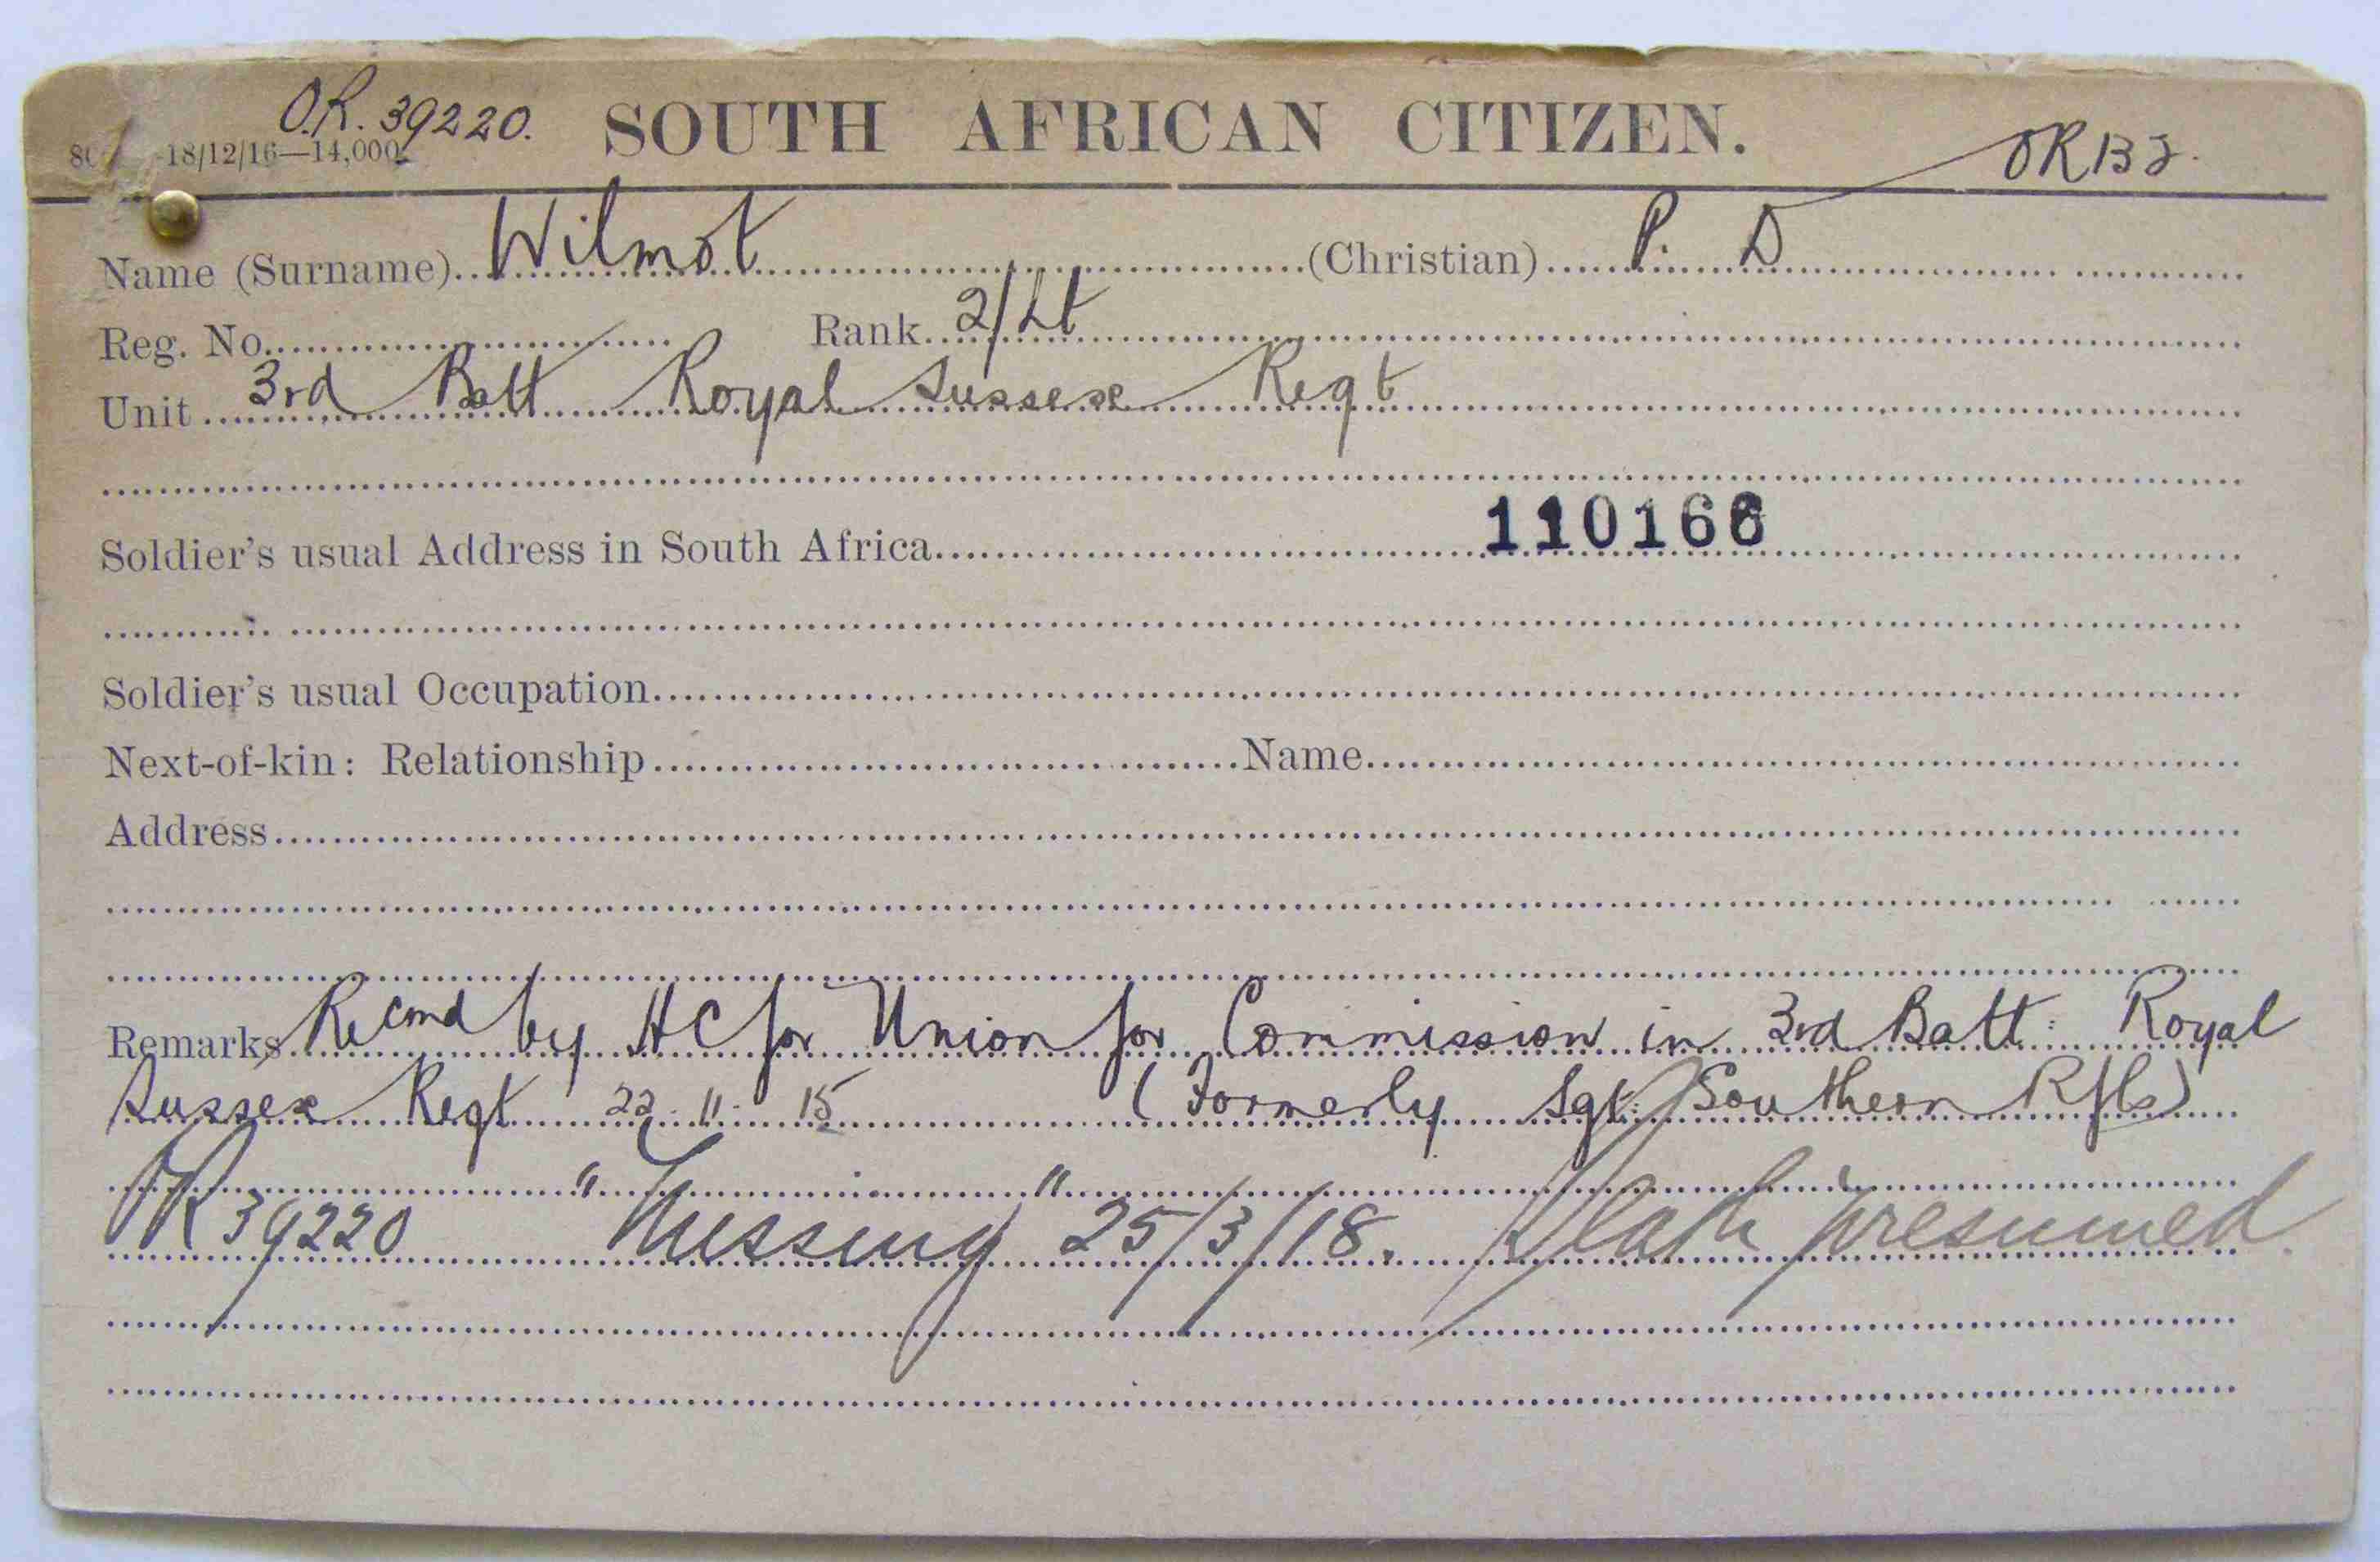 O.R. 39220.
SOUTH AFRICAN CITIZEN.
-18/12/16—14,000.
Name (Surname) Wilmot (Christian) P. D
Reg. No. Rank 2/Lt
Unit 3rd Batt Royal Sussex Regt
110166
Soldier's usual Address in South Africa
Soldier's usual Occupation
Next-of-kin: Relationship Name
Address
Remarks Recmd by HC for Union for Commission in 3rd Batt: Royal
Sussex Regt 22.11.15 (Formerly Sgt: Southern Rfls)
OR 39220 "Missing" 25/3/18. Death presumed.